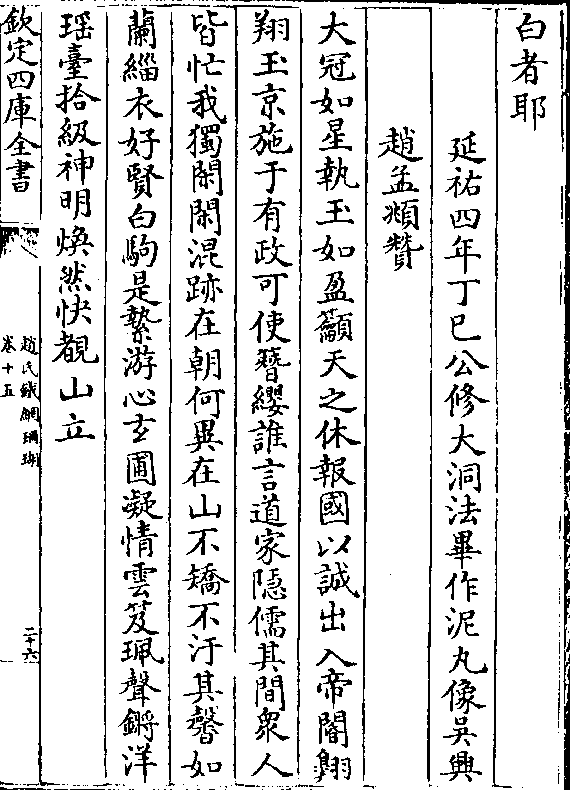 白者耶
延祐四年丁巳公修大洞法畢作泥丸像吳興
趙孟頫贊
大冠如星執玉如盈籲天之休報國以誠出入帝閽翺
翔玉京施于有政可使簪纓誰言道家隱儒其間衆人
皆忙我獨閑閑混跡在朝何異在山不矯不汙其馨如
蘭緇衣好賢白駒是縶游心玄圃凝情雲笈珮聲鏘洋
瑶臺拾級神明煥然快覩山立
欽定四庫全書
趙氏鐵網珊瑚
卷十五
二十六